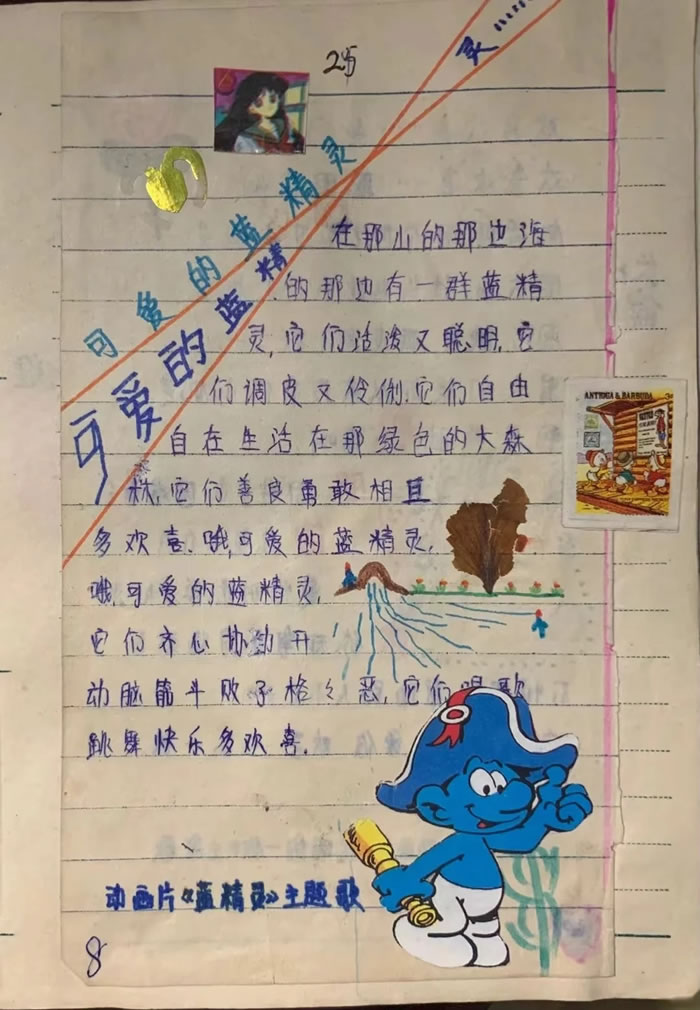 25
灵……
可爱的蓝精灵
可爱的蓝精
在那山的那边海
的那边有一群蓝精
灵,它们活泼又聪明,它
们调皮又伶俐,它们自由
自在生活在那绿色的大森
林,它们善良勇敢相互
多欢喜.哦,可爱的蓝精灵,
哦,可爱的蓝精灵,
它们齐心协力开
动脑筋斗败了格格巫,它们唱歌
跳舞快乐多欢喜.
动画片《蓝精灵》主题歌
8
ANTIGUA & BARBUDA